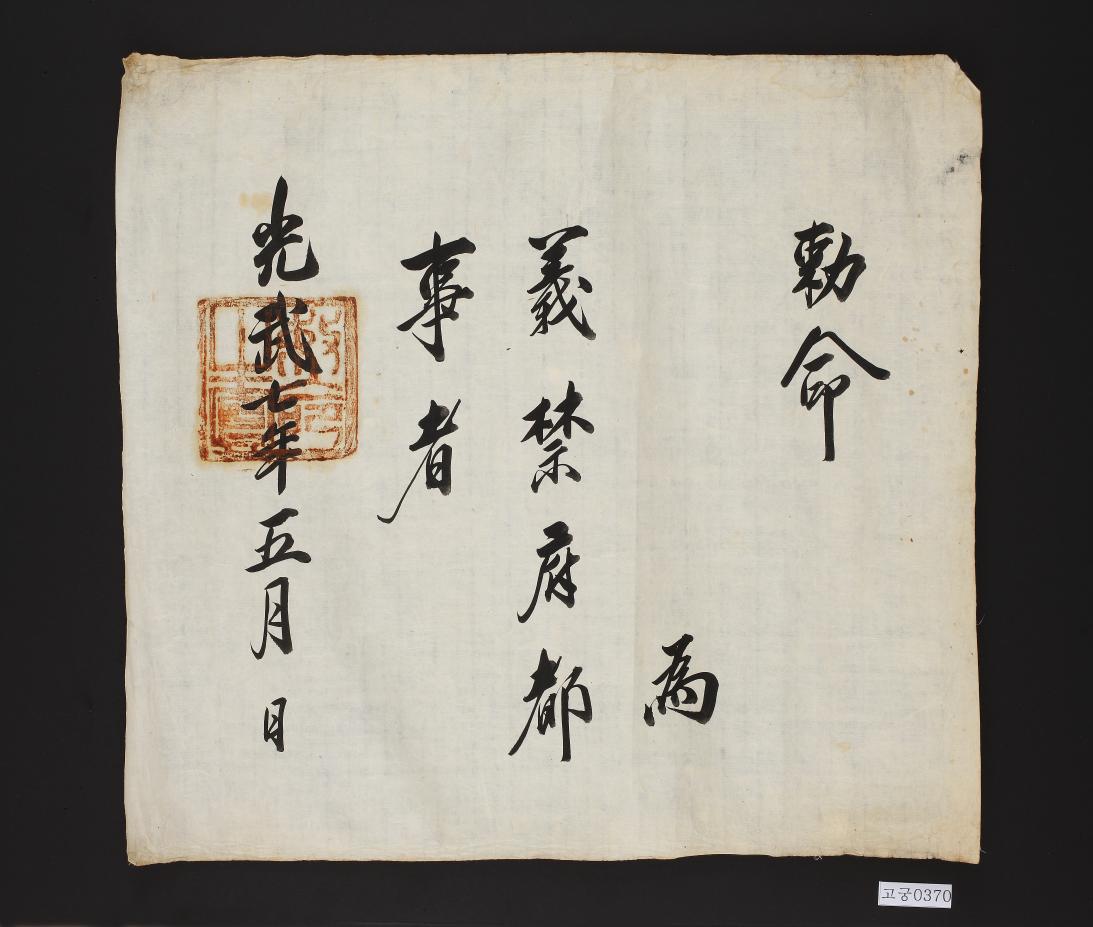 勅命
爲
義禁府都
事者
光武七年五月 日
고궁0370